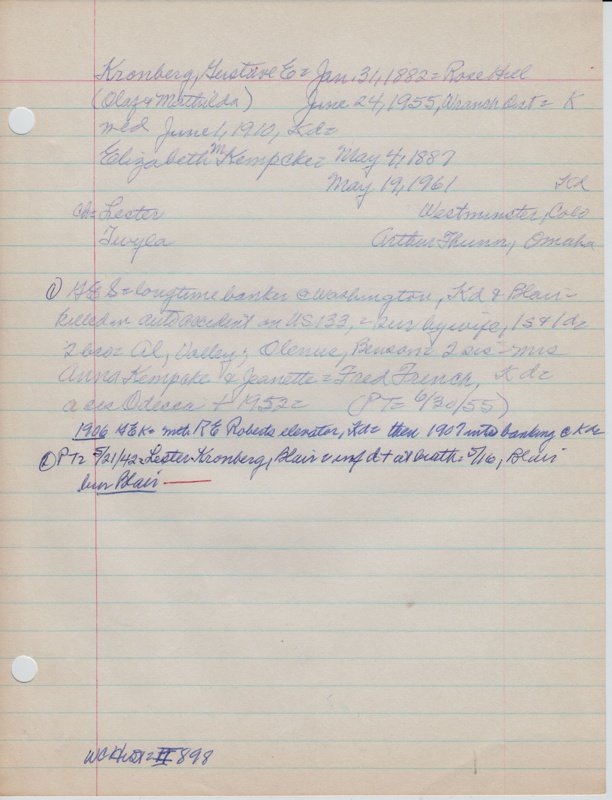 Kronberg, Gustave E = Jan. 31, 1882 = Rose Hill
(Olaf & Mathilda) June 24, 1955, Wransh Dist = K
med June 1, 1910, Kd =
Elizabeth M Kempcke = May 4, 1887
May 19, 1961 Kd
ch = Lester Westminster, Colo
Twyla Arthur Thunn, Omaha
1) G E S = longtime banker @ Washington, Kd & Blair =
killed in auto accident on US 133, = sur by wife, 1 s & 1 d =
2 bro = Al, Valley; Olenus, Benson = 2 sis = Mrs
Anna Kempcke & Jeanette = Fred French, Kd =
a sis Odecca + 1952 = (PT = 6/30/55)
1906 GEK = with R E Roberts elevator, Kd = then 1907 into banking @ Kd =
2) PT = 5/21/42 = Lester Kronberg, Blair = inf d + at birth = 5/16, Blair
bur Blair
WC Hist = II 898